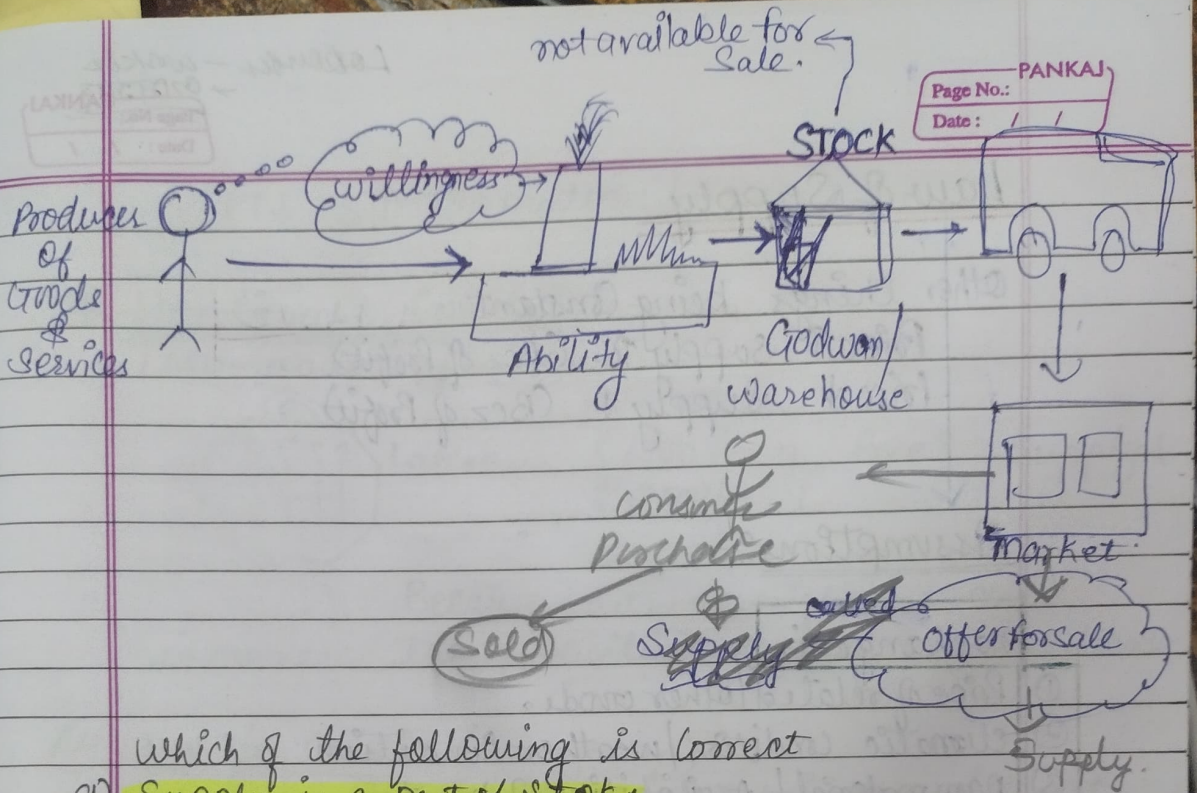 not available for
Sale.
PANKAJ
Page No.:
Date : / /
STOCK
willingness
Producer
Of
Goods
&
Services
Ability
Godwan/
warehouse
Market.
Purchase
Sold
Supply
called
offer for sale
Supply.
which of the following is correct